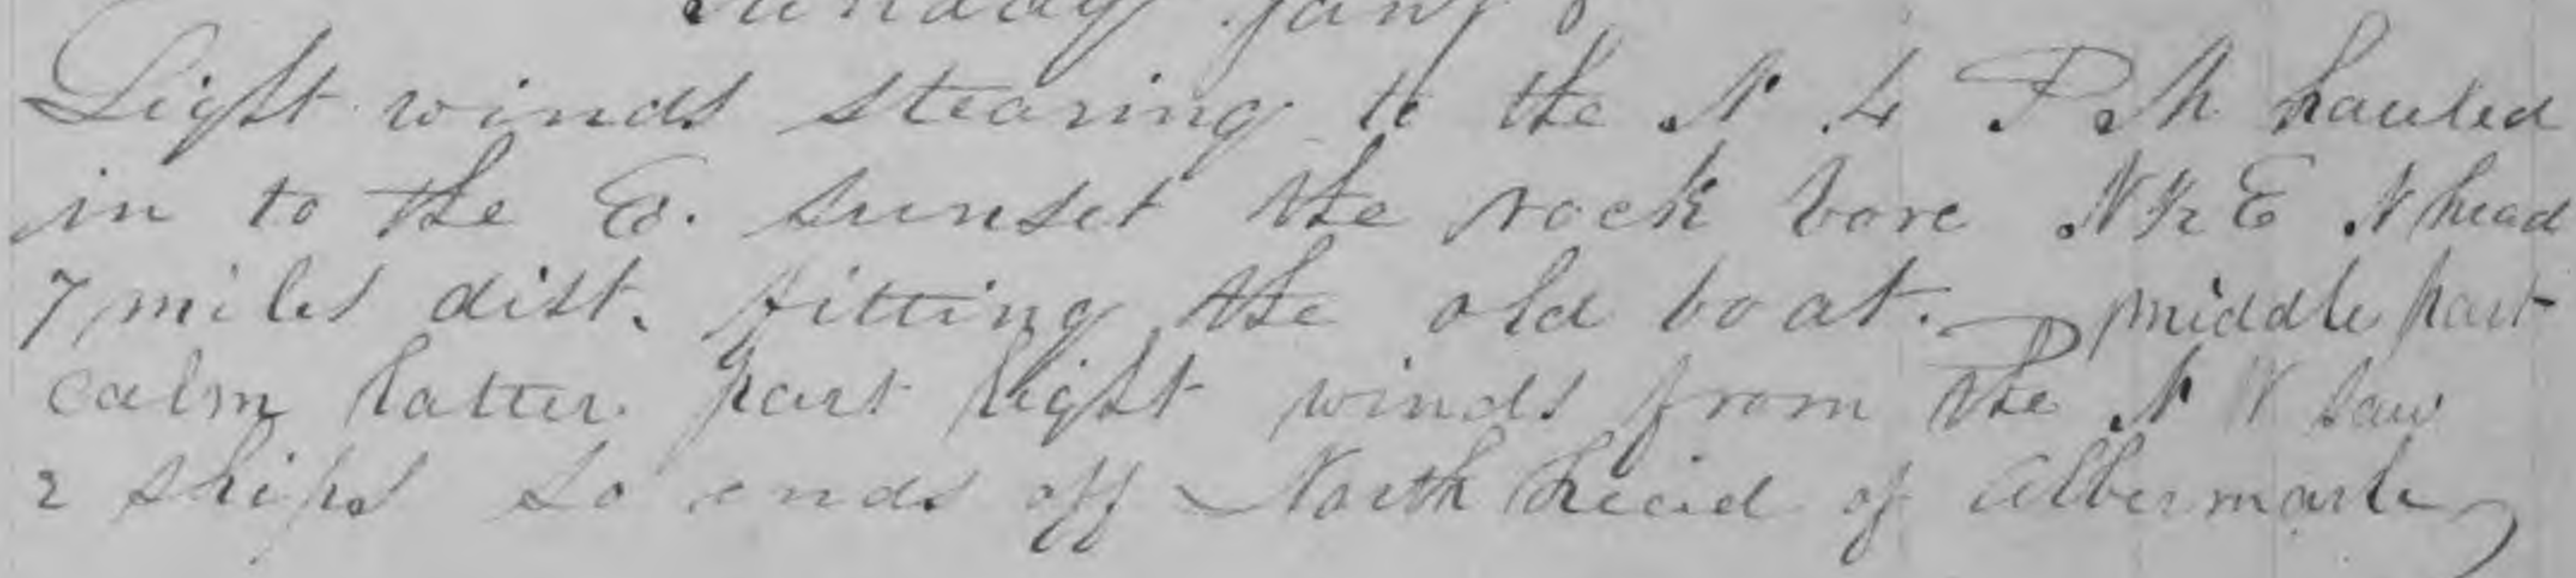 Sunday Jany 8
Light winds stearing to the N 4 P M hauled
in to the E. sunset the rock bore N 1/2 E N head
7 miles dist. fitting the old boat. middle part
calm latter part light winds from the N W saw
2 ships so ends off North head of Albermarle